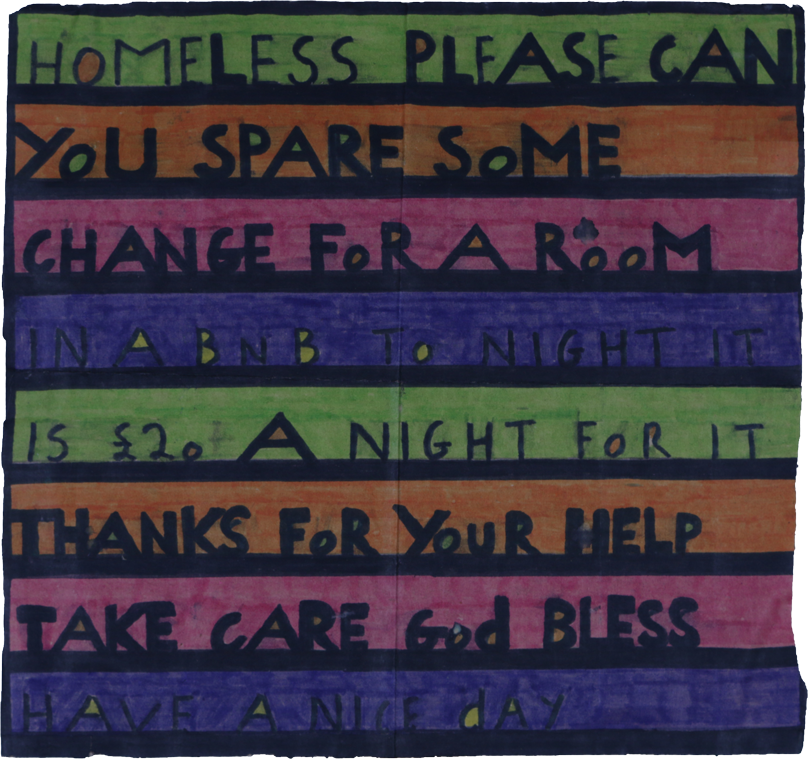 HOMELESS PLEASE CAN
YoU SPARE SoME
CHANGE FoR A RooM
IN A BNB To NIGHT IT
IS £20 A NIGHT FoR IT
THANKS FoR YouR HELP
TAKE CARE God BLESS
HAVE A NICE dAY